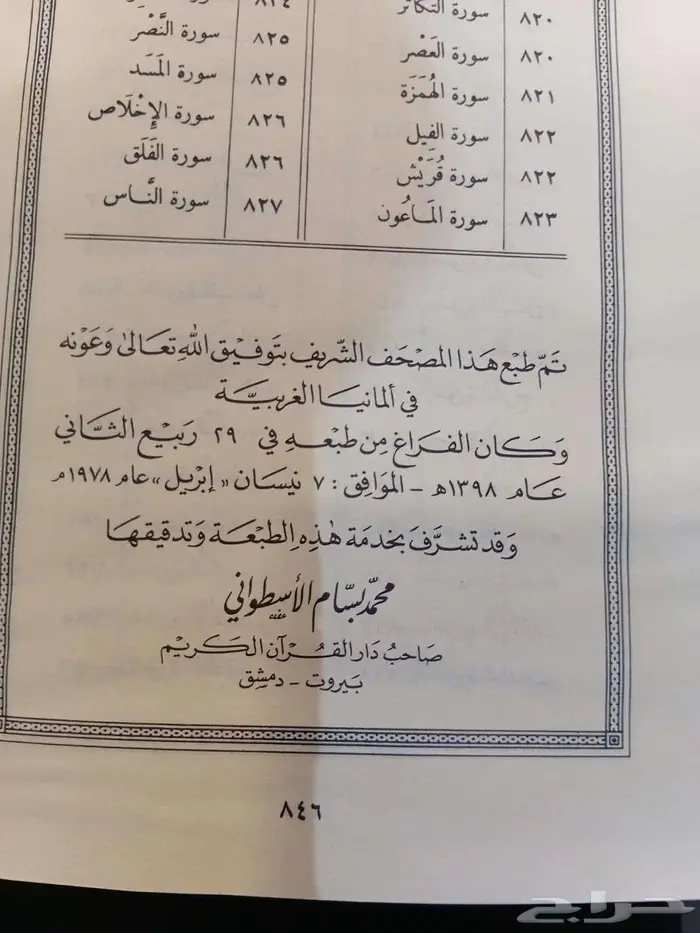 ٨٢٠ سورة التكاثر ٨٢٤
٨٢٠ سورة العَصْر ٨٢٥ سورة النَّصْر
٨٢١ سورة الهُمَزَة ٨٢٥ سورة المَسَد
٨٢٢ سورة الفِيل ٨٢٦ سورة الإِخْلَاص
٨٢٢ سورة قُرَيْش ٨٢٦ سورة الفَلَق
٨٢٣ سورة المَاعُون ٨٢٧ سورة النَّاس
تَمّ طَبْع هَذا المصْحَف الشّريف بتَوفيْق الله تعَالىٰ وَعَوْنه
في ألمانيَا الغربيَّة
وَكَان الفَراغ مِن طبْعهِ في ٢٩ رَبيْع الثَّاني
عَام ١٣٩٨ه - الموَافِق: ٧ نيسَان «إبْريل» عَام ١٩٧٨م
وَقد تشرَّفَ بخدمَة هٰذِهِ الطبْعَة وَتدقيقهَا
محمّد بسّام الأسطواني
صَاحبُ دَار القُرآن الكَريْم
بَيروت - دمشِق
٨٤٦
حراج